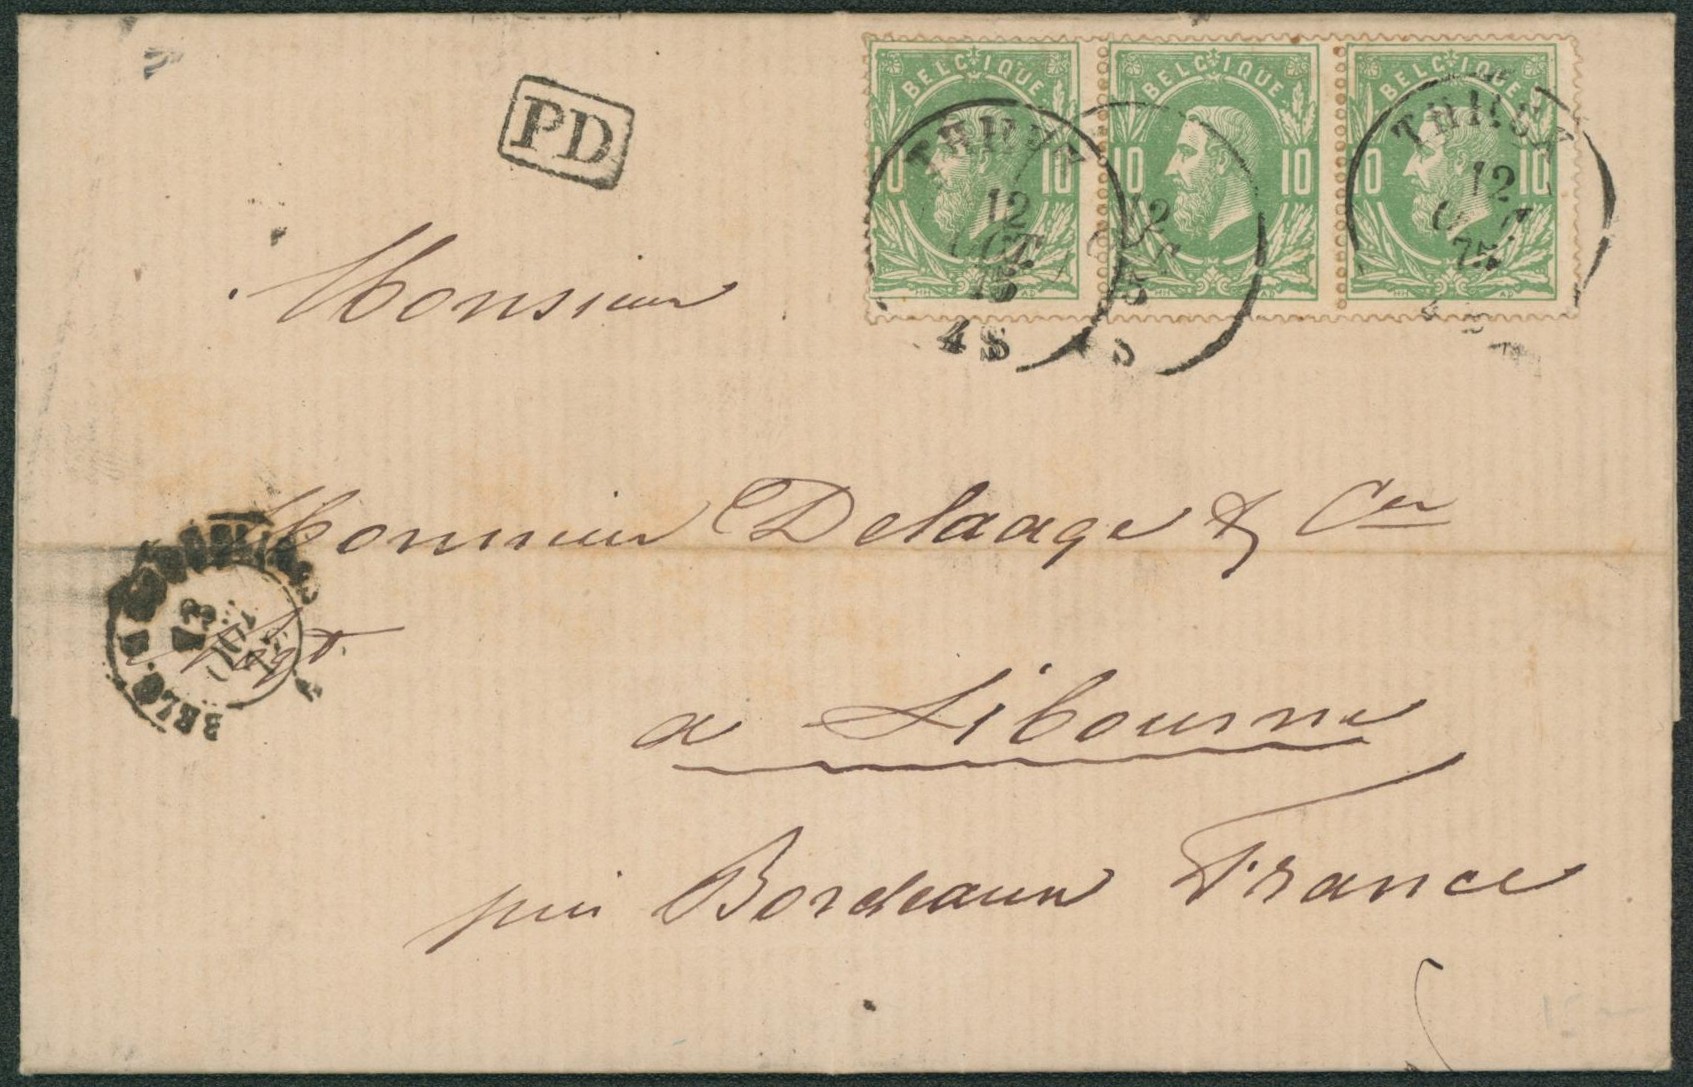 PD
BELGIQUE BELGIQUE BELGIQUE
10 10 10 10 10 10
12
OCT.
75
4 S
12
5
S
12
75
Monsieur
Monsieur Delaage & Cie
Nógt.
à Libourne
BELG. A
12
OCT
par Bordeaux France